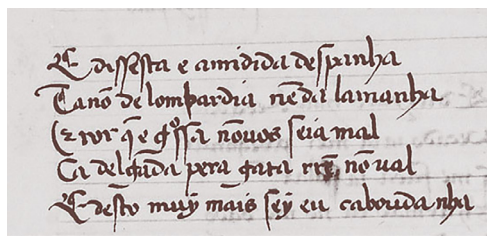 E dissesta e amidida despanha
Tanō de lombardia nē da lamanha
E ror q̄ e gͦssa nōuos seia mal
Ca delg̃da pera gata rrē nō ual
E desto muỹ mais seẏ eu cabouda nha